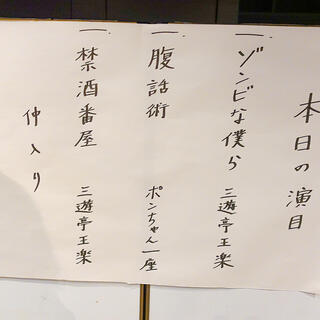 本日の演目
一、ゾンビな僕ら 三遊亭王楽
一、腹話術 ポンちゃん一座
一、禁酒番屋 三遊亭王楽
仲入り